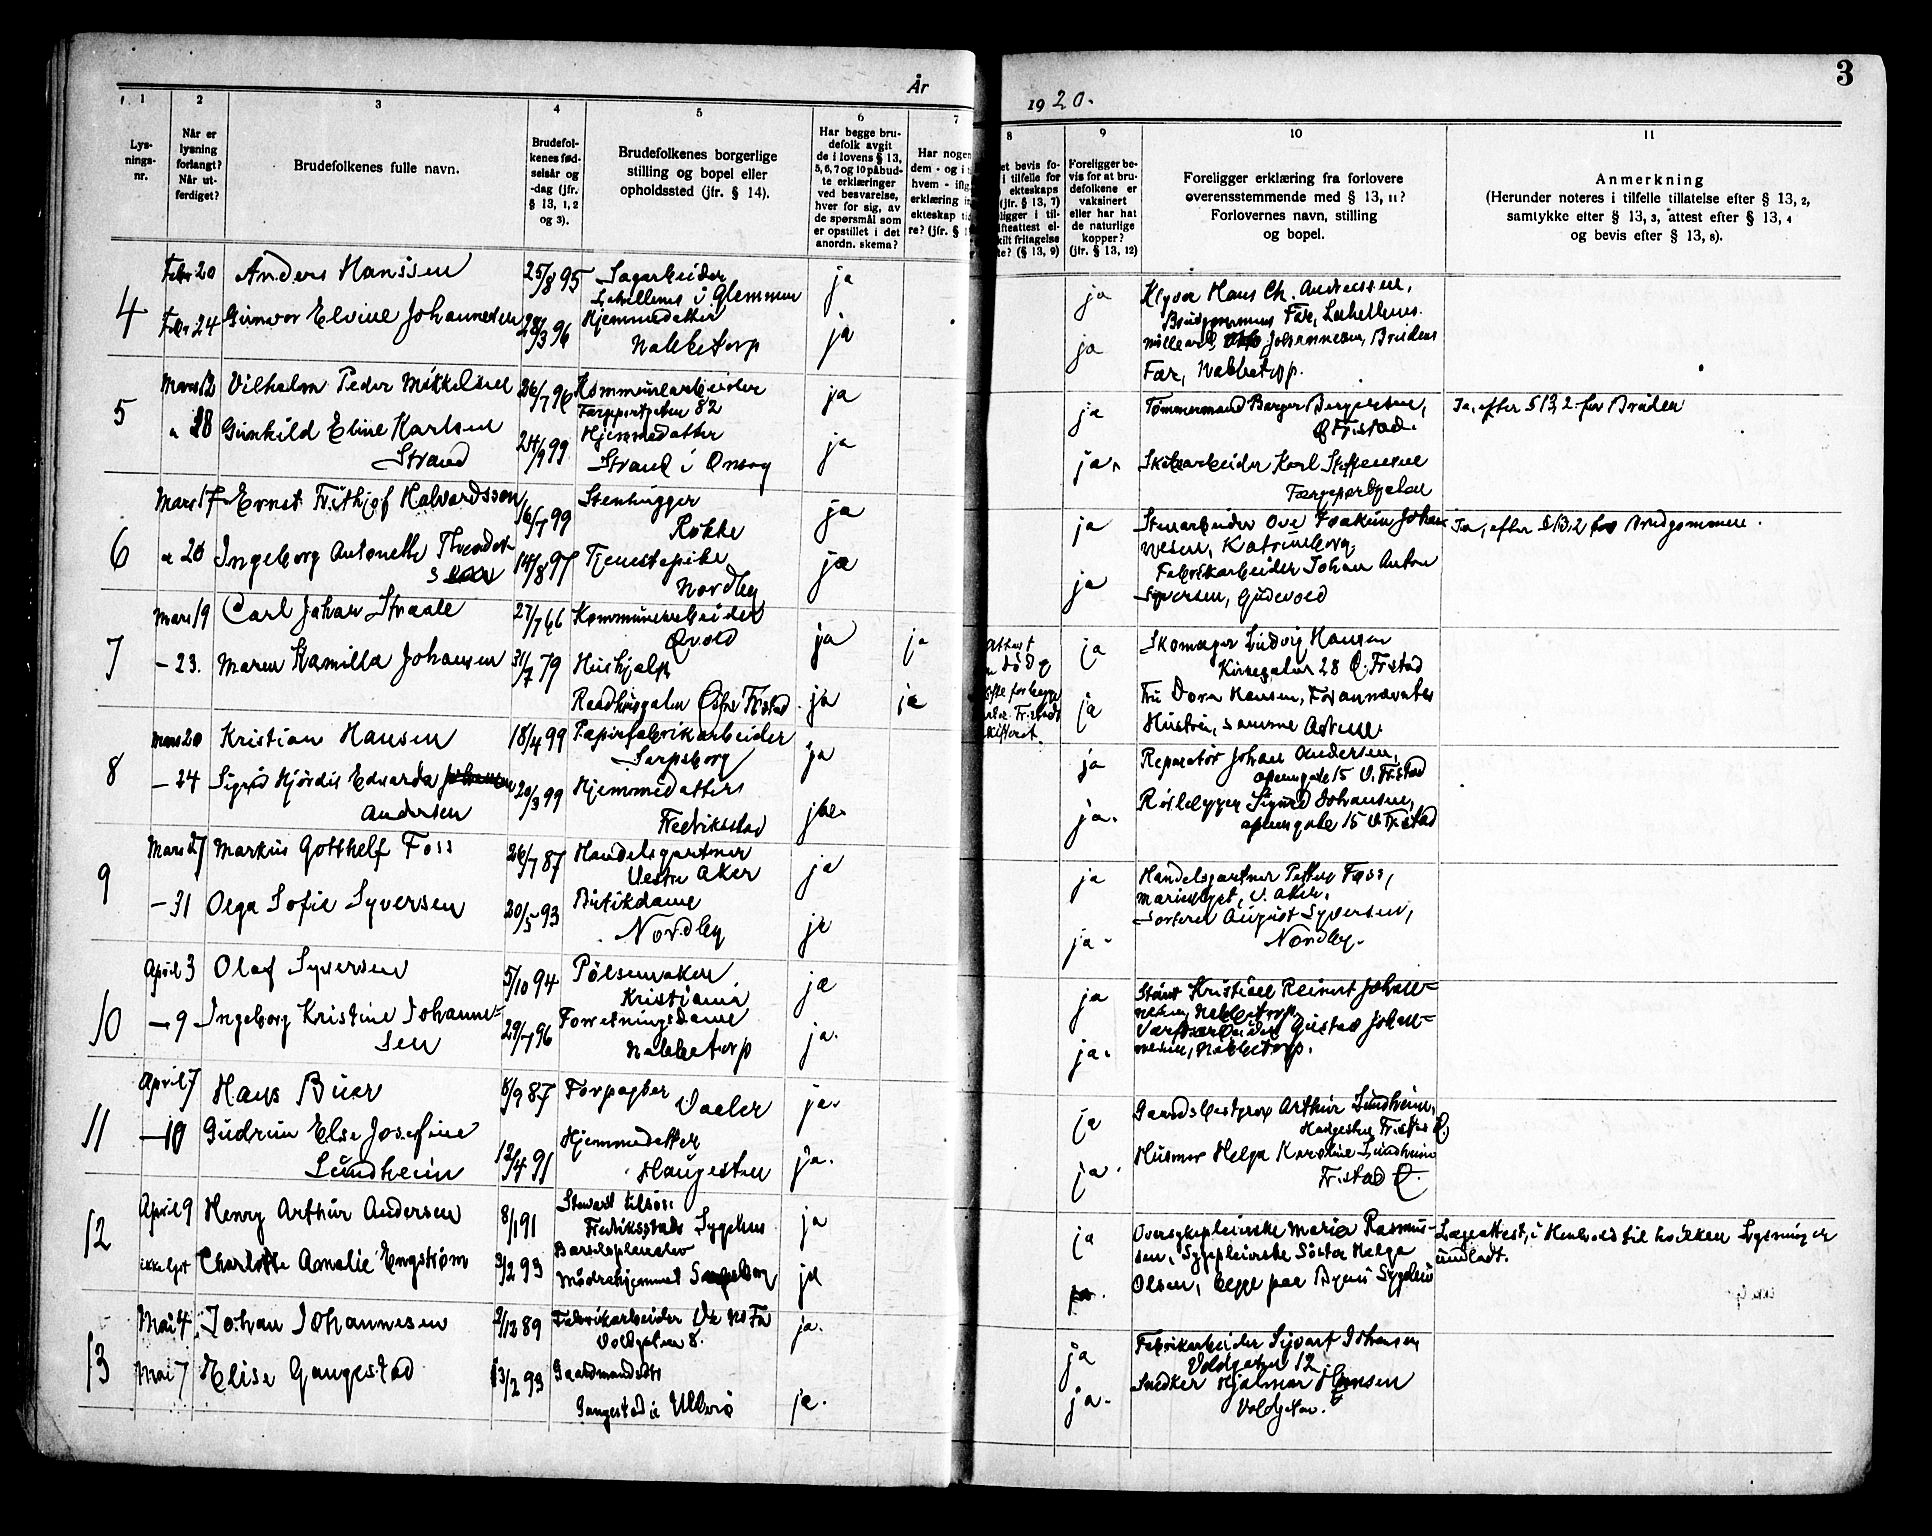 År
1920.
3
1
2
3
4
5
6
7
8
9
10
11
Lys-
nings-
nr.
Når er
lysning
forlangt?
Når ut-
ferdiget?
Brudefolkenes fulle navn.
Brudefol-
kenes fød-
selsår og
-dag (jfr.
§ 13, 1, 2
og 3).
Brudefolkenes borgerlige
stilling og bopel eller
opholdssted (jfr. § 14).
Har begge bru-
defolk avgit
de i lovens § 13,
5, 6, 7 og 10 påbud-
te erklæringer
ved besvarelse,
hver for sig, av
de spørsmål som
er opstillet i det
anordn. skema?
Har nogen
dem - og i t
hvem - iflg.
erklæring in
ekteskap ti
re? (jfr. § 1
et bevis fo-
i tilfelle for
ekteskaps
(jfr. § 13, 7)
ligger i til-
ifteattest el-
kilt fritagelse
te? (§ 13, 9)
Foreligger be-
vis for at bru-
defolkene er
vaksinert
eller har hat
de naturlige
kopper?
(jfr. § 13, 12)
Foreligger erklæring fra forlovere
overensstemmende med § 13, 11?
Forlovernes navn, stilling
og bopel.
Anmerkning
(Herunder noteres i tilfelle tillatelse efter § 13, 2,
samtykke efter § 13, 3, attest efter § 13, 4
og bevis efter § 13, 8).
4
Febr 20 Anders Hanssen 25/8 95 Sagarbeider ja
i Glemmen
Febr 24 Gunvor Elvine Johannesen 28/3 96 Hjemmedatter ja
Nabbetorp
ja Hans Ch. Andreassen,
Brudgommens Far,
ja Johannesen, Brudens
Far, Nabbetorp.
5
Mars 12 Vilhelm Peder Mikkelsen 26/7 96 Kommunearbeider ja
Færgeportgaten 82
" 18 Gunhild Eline Karlsen 24/9 99 Hjemmedatter ja
Strand Strand i Onsøy
ja Tømmermand Birger Birgersen, Ja, efter § 13, 2 for Bruden
Ø Fr.stad.
ja. Karl Steffensen
Færgeportgaten
6
Mars 17 Ernst Frithjof Halvardsson 16/7 99 Stenhugger ja
Rokke
" 20 Ingeborg Antonette 14/8 97 Tjenestepike ja
Nordby
ja Stenarbeider Ove Joakim Johan- Ja, efter § 13, 2 for Brudgommen.
nesen, Katrineborg
Fabrikarbeider Johan Anton
ja Syversen, Gudevold
7
Mars 19 Carl Johan Straale 27/7 66 Kommunearbeider ja ja
– 23. Maren Kamilla Johansen 31/7 79 Hushjelp
Raadhusgaten Østre Fr.stad. ja ja
Attest
ja Skomager Ludvig Hansen
Kirkegaten 28 Ø. Fr.stad
ja Fru Dora Hansen, Forannævntes
Hustru, samme Adresse.
8
Mars 20 Kristian Hansen 18/4 99 Papirfabrikarbeider ja
Sarpsborg
– 24 Sigrid Hjördis Edvarda Johansen 20/3 99 Hjemmedatter
Andersen Fredriksstad ja.
ja Reparatør Johan Andersen,
15 V. Fr.stad
ja. Rørlegger Sigurd Johansen,
15 V. Fr.stad
9
Mars 27 Markus Gotthelf Foss 26/7 87 Handelsgartner ja
Vestre Aker
– 31 Olga Sofie Syversen 20/5 93 Butikdame ja
Nordby
ja Handelsgartner Petter Foss,
V. Aker.
August Syversen,
ja. Nordby.
10
April 3 Olaf Syversen 5/10 94 Pølsemaker ja
Kristiania
– 9 Ingeborg Kristine Johanne- 29/7 96 Forretningsdame ja.
sen Nabbetorp
ja Kristian Reinert Johan-
nesen, Nabbetorp
Gustav Johan-
ja. nesen, Nabbetorp.
11
April 7 Hans Buer 8/9 87 Forpagter Vaaler ja.
– 10 Gudrun Else Josefine
Lundheim 12/4 91 Hjemmedatter
Haugesten ja.
ja Gaardsbestyrer Arthur Lundheim,
Haugesten Fr.stad Ø.
ja. Husmor Helga Karoline Lundheim
Fr.stad Ø.
12
April 9 Henry Arthur Andersen 8/1 91 Stewart tilsøis ja
Fredriksstads Sygehus
ikke lyst Charlotte Amalie Engstrøm 3/2 93
Mødrehjemmet Sarpsborg ja
ja Oversykepleierske Maria Rasmus- Lægeattest, i Henhold til hvilken Lysning er
sen, Sygepleierske Søster Helga undladt.
ja. Olsen, begge paa Byens Sygehus
13
Mai 4 Johan Johannesen 2/12 89 Fabrikarbeider ja.
Voldgaten 8.
Mai 7 Elise Gangestad 13/2 93 Gaardmandsdtr
Gangestad i Ullerø ja.
ja Fabrikarbeider Sigvart Johansen
Voldgaten 12
ja. Snedker Hjalmar Hansen
Voldgaten.